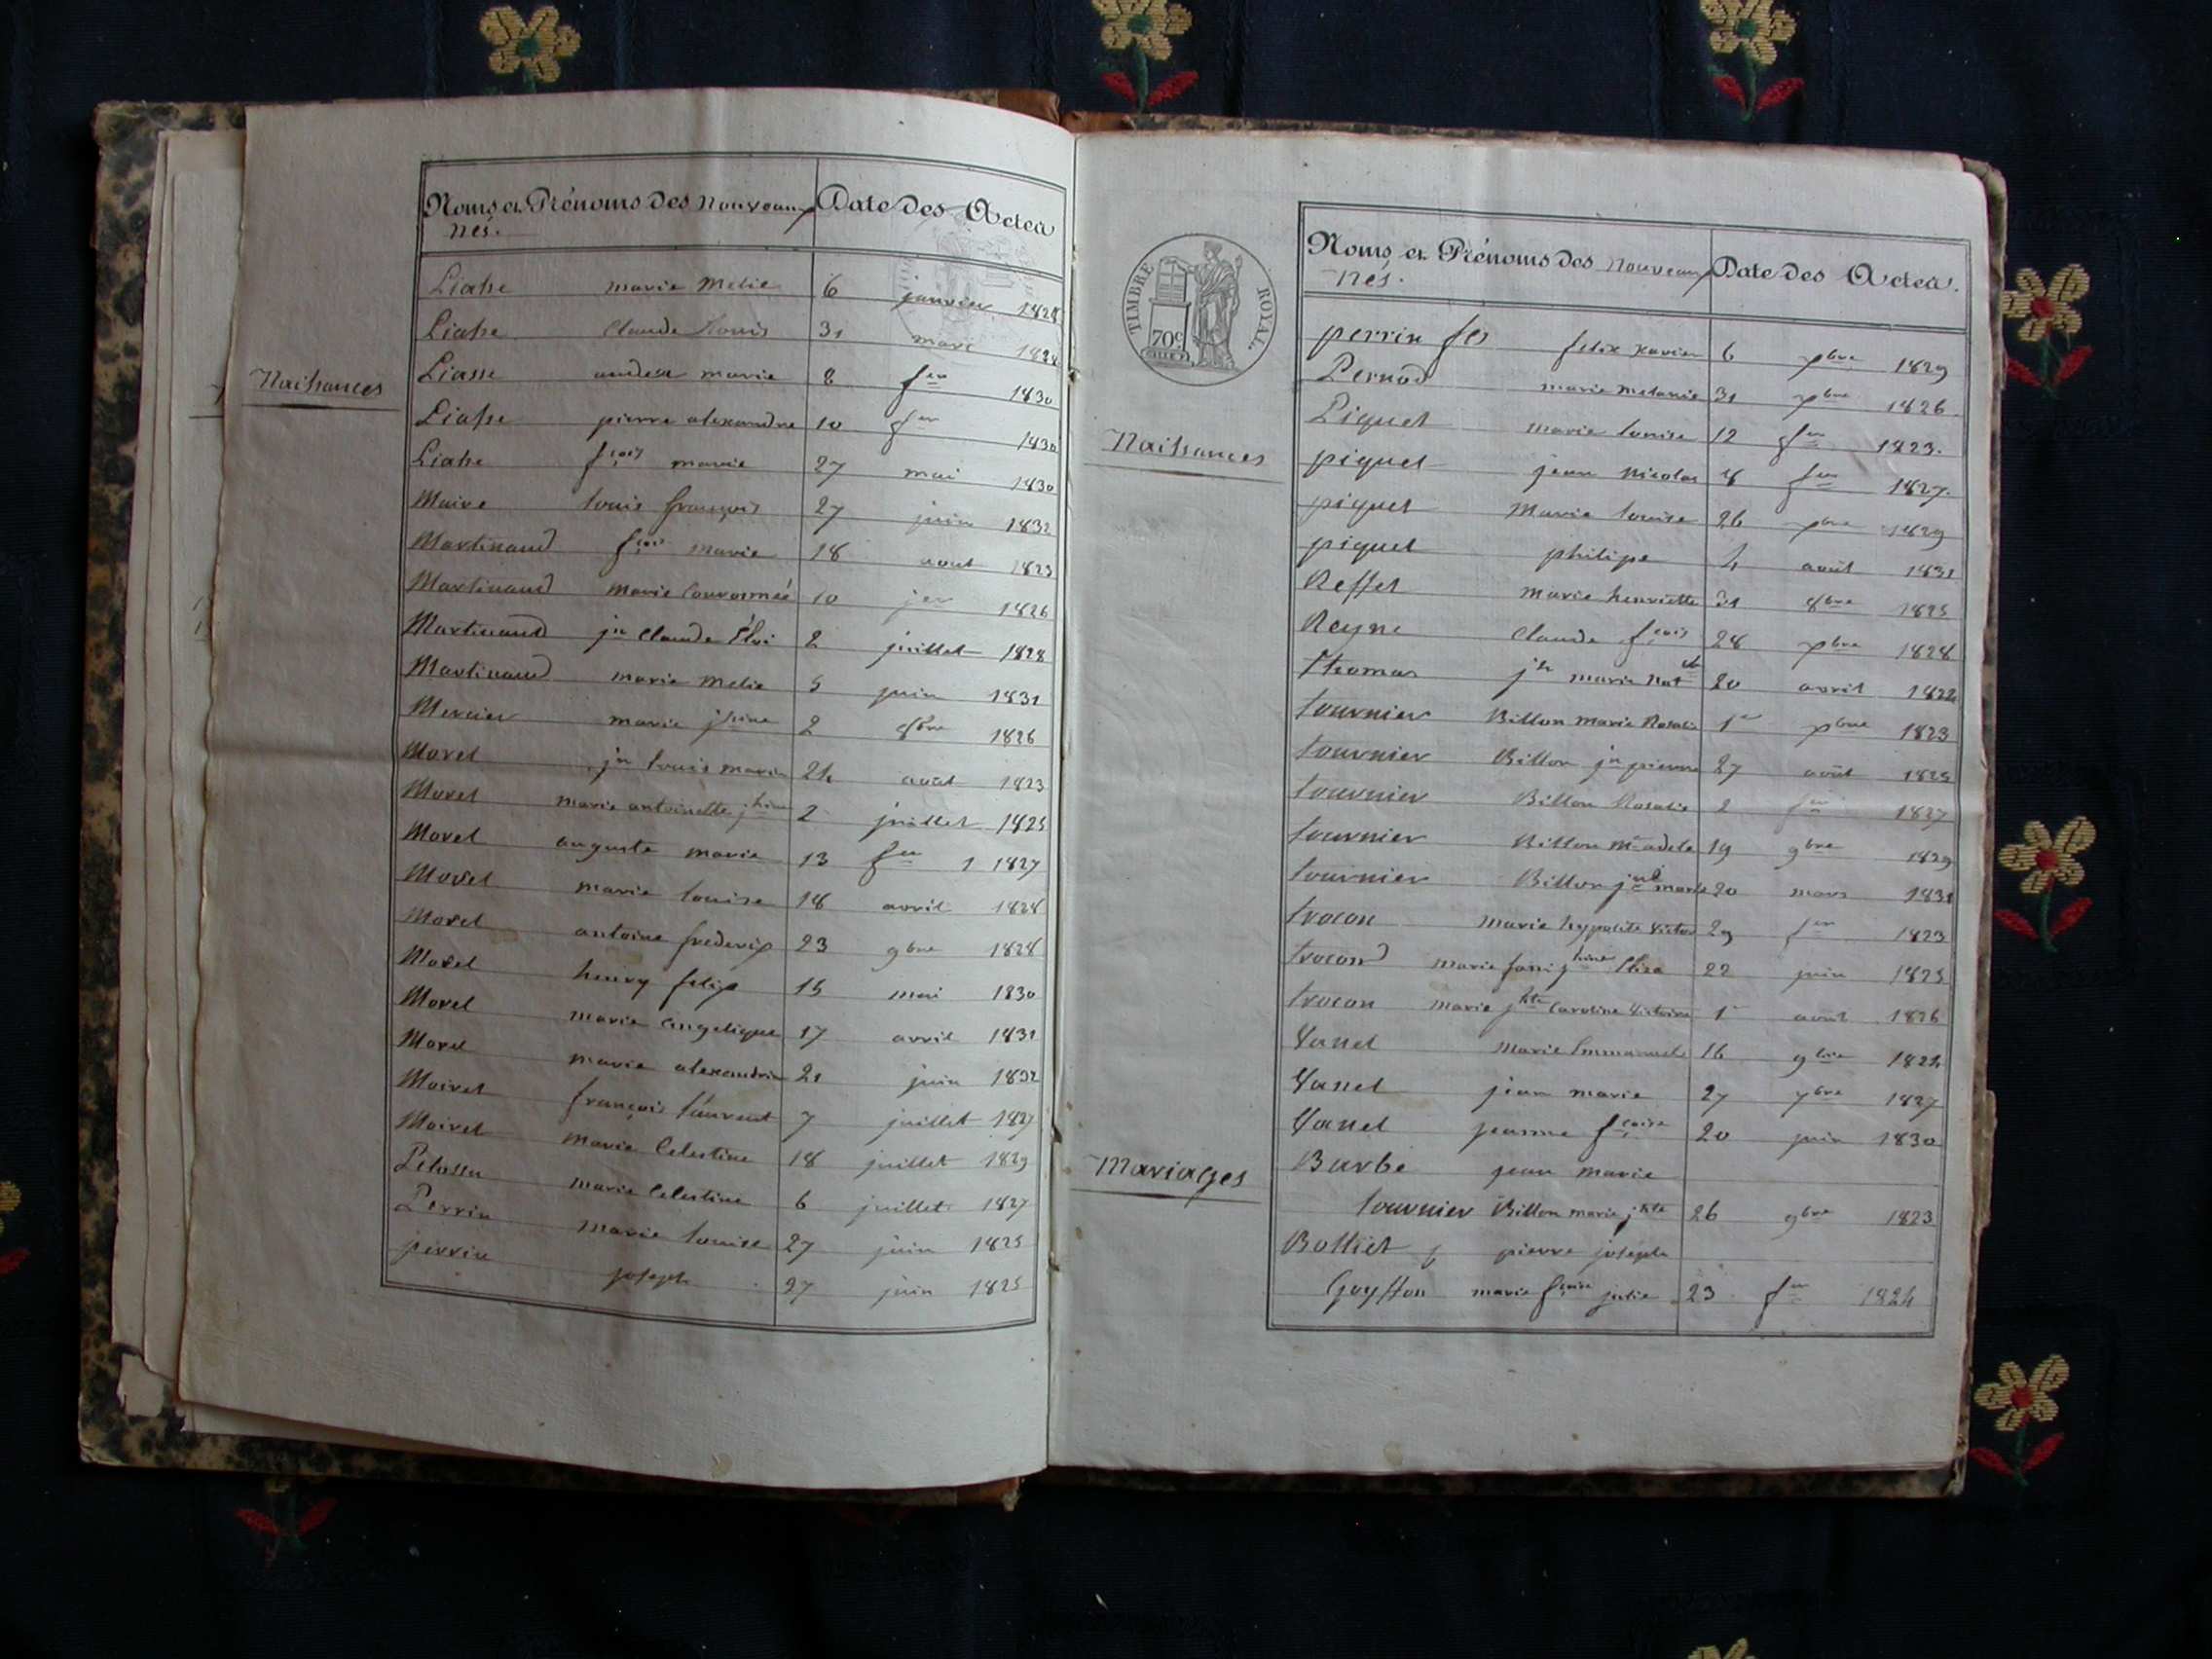 Noms et Prénoms des nouveaux
nés.
Date des Actes
Naissances
Liasse marie melie 6 janvier 1828
Liasse claude Louis 31 mars 1828
Liasse marie 8 fer 1830
Liasse pierre alexandre 10 fer 1830
Liasse fcois marie 27 mai 1830
Maire louis françois 27 juin 1832
Martinaud fcois marie 18 aout 1823
Martinaud marie 10 jer 1826
Martinaud jn claude Éloi 2 juillet 1828
Martinaud marie melie 5 juin 1831
Mercier marie jhine 2 8bre 1826
Morel jn louis marie 24 août 1823
Morel marie antoinette jhine 2 juillet 1825
Morel auguste marie 13 fer 1 1827
Morel marie louise 18 avril 1828
Morel antoine frederix 23 9bre 1828
Morel henry felix 15 mai 1830
Morel marie angelique 17 avril 1831
Morel marie alexandrine 21 juin 1832
Moirel françois laurent 7 juillet 1827
Moirel marie celestine 18 juillet 1829
marie celestine 6 juillet 1827
Perrin marie louise 27 juin 1825
perrin joseph 27 juin 1825
TIMBRE ROYAL.
70c
Noms et Prénoms des nouveaux
nés.
Date des Actes.
Naissances
perrin felix xavier 6 xbre 1829
Pernod marie melanie 31 xbre 1826
Piquet marie louise 12 fer 1823.
piquet jean nicolas 8 fer 1827.
piquet Marie louise 26 xbre 1829
piquet philipe 4 août 1831
Reffet marie henriette 31 8bre 1825
Reyne claude fcois 28 xbre 1828
Thomas jh marie 20 avril 1822
tournier Billon marie Rosalie 1er xbre 1823
tournier Billon jn pierre 27 août 1825
tournier Billon Rosalie 2 fer 1827
tournier Billon mie adele 19 9bre 1829
tournier Billon marie 20 mars 1831
trocon marie hypolite victor 29 jer 1823
trocond marie fani jhine Eliza 22 juin 1825
trocon marie jhte caroline victoire 1er août 1826
Vanel marie Emmanuel 16 9bre 1824
Vanel jean marie 27 7bre 1827
Vanel jeanne fcoise 20 juin 1830
Mariages
Barbe jean marie
tournier Billon marie jhte 26 9bre 1823
Bolliet f pierre joseph
Goyffon marie fcoise julie 23 fer 1824